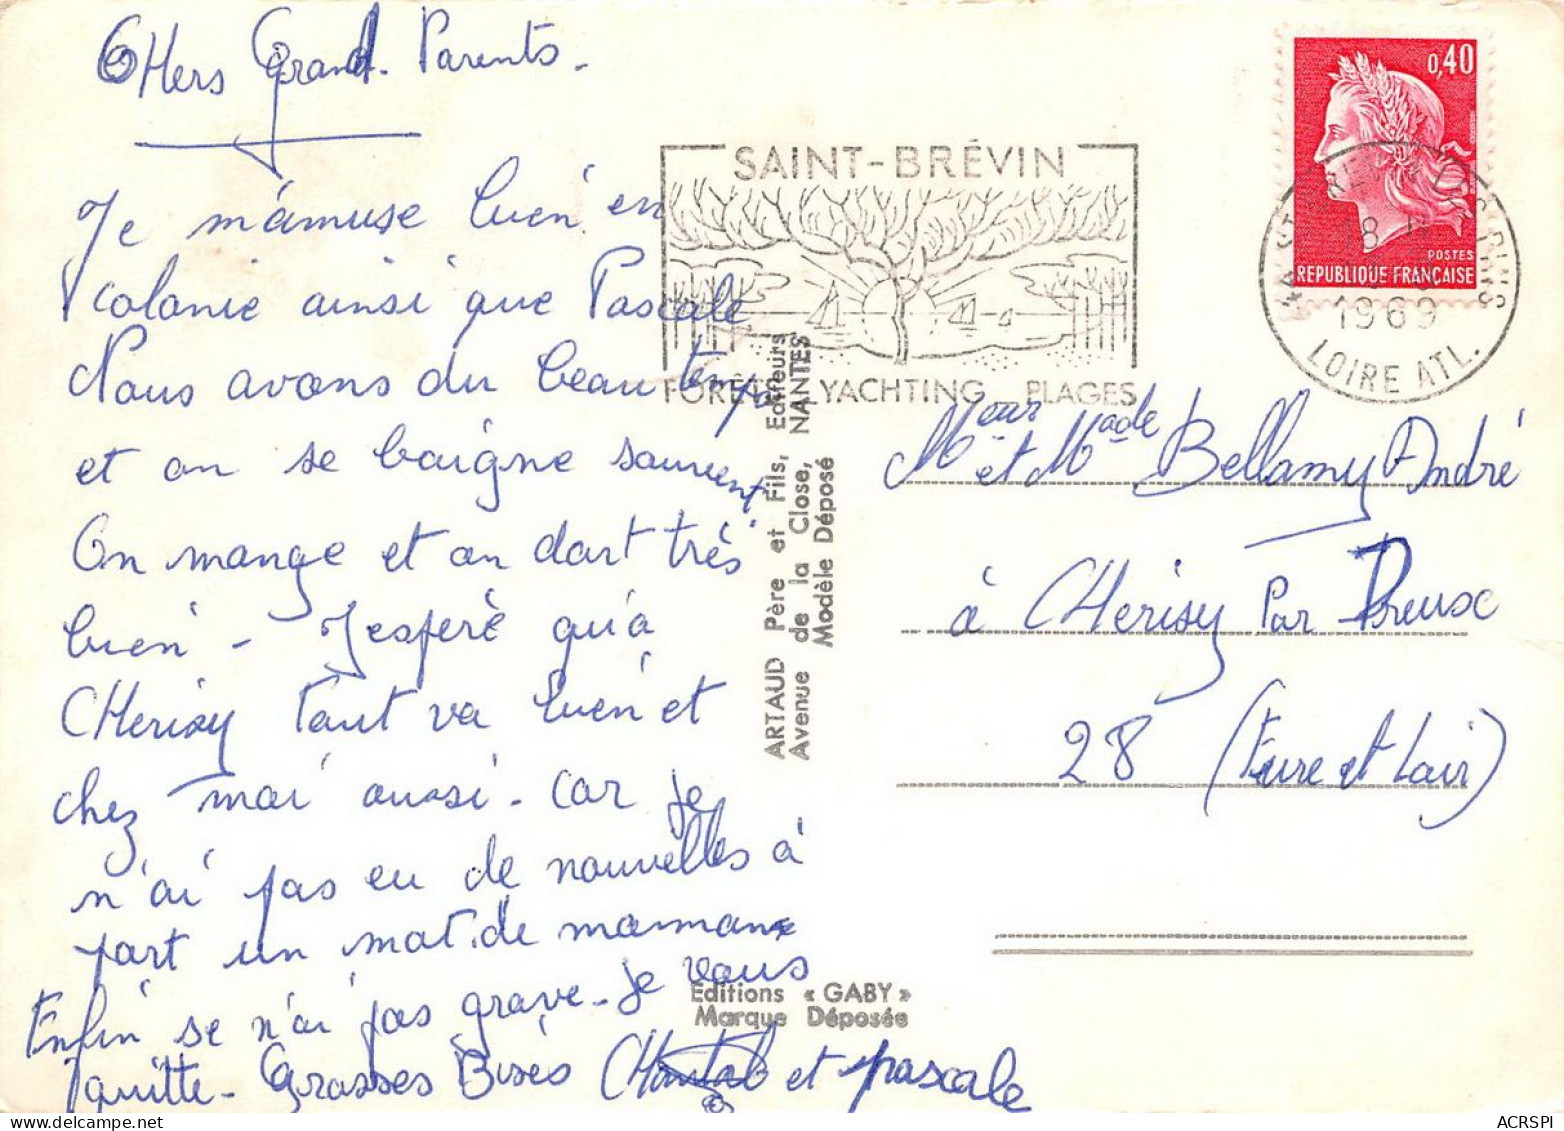 CHers Grand-Parents-
Je m'amuse bien en
colonie ainsi que Pascale
Nous avons du beau temps
et on se baigne souvent
On mange et on dort très
bien - J'espère qu'à
CHerisy tout va bien et
chez moi aussi - car je
n'ai pas eu de nouvelles à
part un mot de maman
Enfin se n'ai pas grave - Je vous
quitte - Grosses Bises CHantal et pascale
SAINT-BRÉVIN
FORÊTS _ YACHTING _ PLAGES
0,40
POSTES
REPUBLIQUE FRANÇAISE
18 H
1969
LOIRE ATL.
ARTAUD Père et Fils, Editeurs
Avenue de la Close, NANTES
Modèle Déposé
Meur et Made Bellamy André
à CHerisy Par Dreux
28 (Eure et Loir)
Editions « GABY »
Marque Déposée
ACRSPI